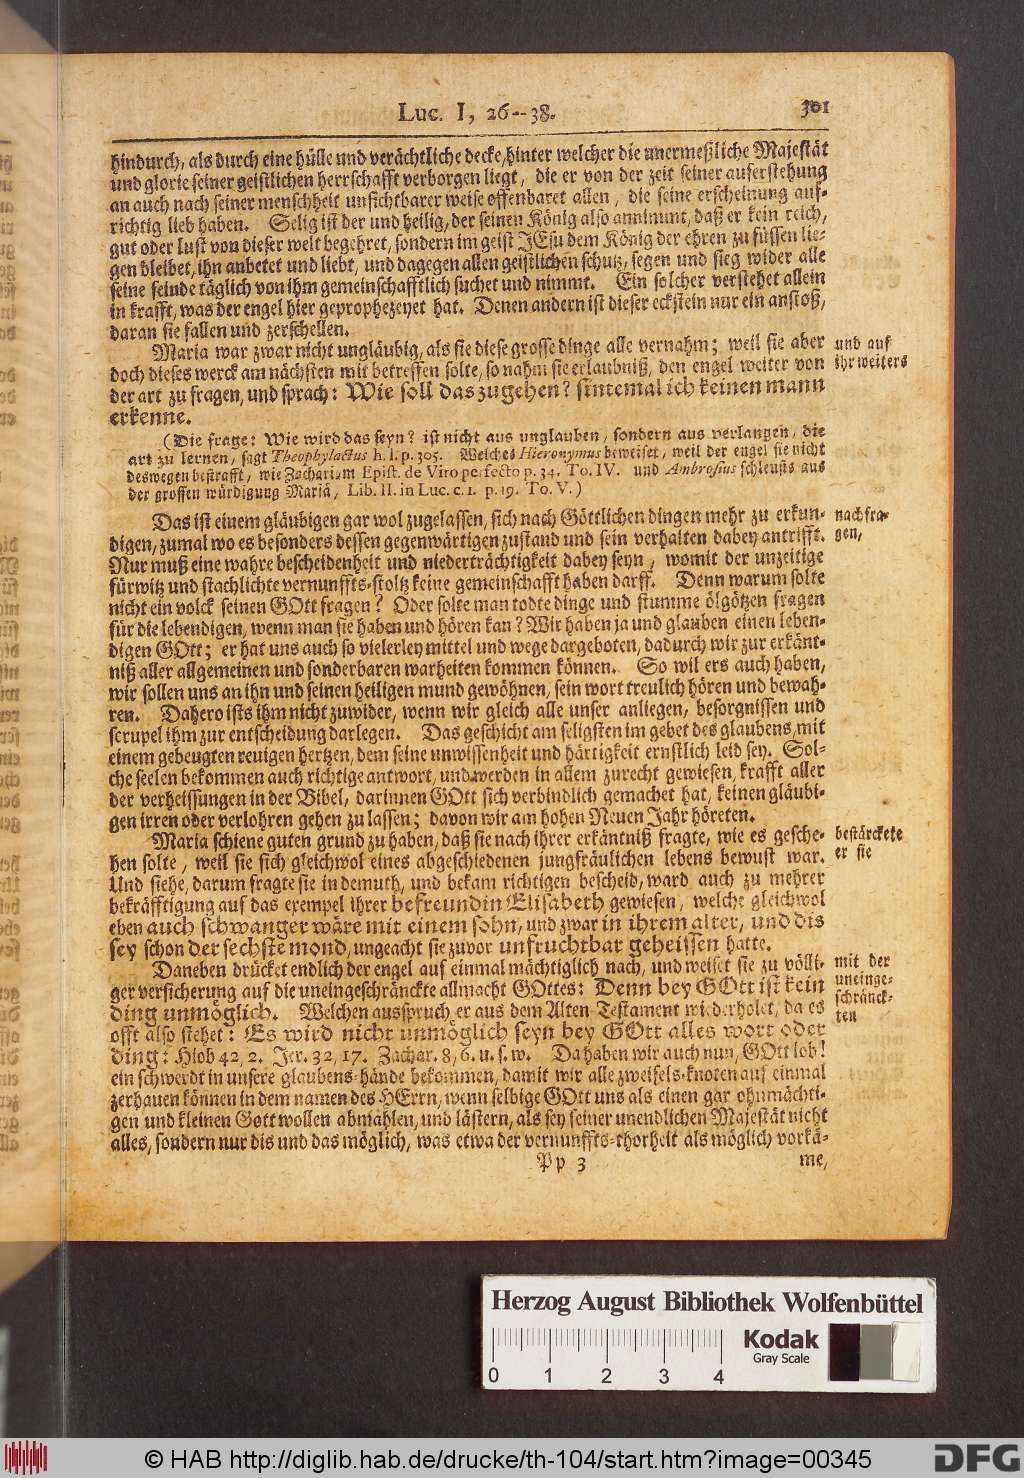 Luc. I, 26--38. 301
hindurch, als durch eine hülle und verächtliche decke, hinter welcher die unermeßliche Majestät
und glorie seiner geistlichen herrschafft verborgen liegt, die er von der zeit seiner auferstehung
an auch nach seiner menschheit unsichtbarer weise offenbaret allen, die seine erscheinung auf-
richtig lieb haben. Selig ist der und heilig, der seinen König also annimmt, daß er kein reich,
gut oder lust von dieser welt begehret, sondern im geist JEsu dem König der ehren zu füssen lie-
gen bleibet, ihn anbetet und liebt, und dagegen allen geistlichen schutz, segen und sieg wider alle
seine feinde täglich von ihm gemeinschafftlich suchet und nimmt. Ein solcher verstehet allein
in krafft, was der engel hier geprophezeyet hat. Denen andern ist dieser eckstein nur ein anstoß,
daran sie fallen und zerschellen.
Maria war zwar nicht ungläubig, als sie diese grosse dinge alle vernahm; weil sie aber
und auf
doch dieses werck am nächsten mit betreffen solte, so nahm sie erlaubniß, den engel weiter von
ihr weiters
der art zu fragen, und sprach: Wie soll das zugehen? sintemal ich keinen mann
erkenne.
(Die frage: Wie wird das seyn? ist nicht aus unglauben, sondern aus verlangen, die
art zu lernen, sagt Theophylactus h. l. p. 305. Welches Hieronymus beweiset, weil der engel sie nicht
deswegen bestrafft, wie Zachariam Epist. de Viro perfecto p. 34. To. IV. und Ambrosius schleusts aus
der grossen würdigung Mariä, Lib. II. in Luc. c. 1. p. 19. To. V.)
Das ist einem gläubigen gar wol zugelassen, sich nach Göttlichen dingen mehr zu erkun-
nachfra-
digen, zumal wo es besonders dessen gegenwärtigen zustand und sein verhalten dabey antrifft.
gen,
Nur muß eine wahre bescheidenheit und niederträchtigkeit dabey seyn, womit der unzeitige
fürwitz und stachlichte vernunffts-stoltz keine gemeinschafft haben darff. Denn warum solte
nicht ein volck seinen GOtt fragen? Oder solte man todte dinge und stumme ölgötzen fragen
für die lebendigen, wenn man sie haben und hören kan? Wir haben ja und glauben einen leben-
digen GOtt; er hat uns auch so vielerley mittel und wege dargeboten, dadurch wir zur erkänt-
niß aller allgemeinen und sonderbaren warheiten kommen können. So wil ers auch haben,
wir sollen uns an ihn und seinen heiligen mund gewöhnen, sein wort treulich hören und bewah-
ren. Dahero ists ihm nicht zuwider, wenn wir gleich alle unser anliegen, besorgnissen und
scrupel ihm zur entscheidung darlegen. Das geschicht am seligsten im gebet des glaubens, mit
einem gebeugten reuigen hertzen, dem seine unwissenheit und härtigkeit ernstlich leid sey. Sol-
che seelen bekommen auch richtige antwort, und werden in allem zurecht gewiesen, krafft aller
der verheissungen in der Bibel, darinnen GOtt sich verbindlich gemachet hat, keinen gläubi-
gen irren oder verlohren gehen zu lassen; davon wir am hohen Neuen Jahr höreten.
Maria schiene guten grund zu haben, daß sie nach ihrer erkäntniß fragte, wie es gesche-
bestärckete
hen solte, weil sie sich gleichwol eines abgeschiedenen jungfräulichen lebens bewust war.
er sie
Und siehe, darum fragte sie in demuth, und bekam richtigen bescheid, ward auch zu mehrer
bekräfftigung auf das exempel ihrer befreundin Elisabeth gewiesen, welche gleichwol
eben auch schwanger wäre mit einem sohn, und zwar in ihrem alter, und dis
sey schon der sechste mond, ungeacht sie zuvor unfruchtbar geheissen hatte.
Daneben drücket endlich der engel auf einmal mächtiglich nach, und weiset sie zu völli-
mit der
ger versicherung auf die uneingeschränckte allmacht GOttes: Denn bey GOtt ist kein
uneinge-
ding unmöglich. Welchen ausspruch er aus dem Alten Testament wiederholet, da es
schränck-
offt also stehet: Es wird nicht unmöglich seyn bey GOtt alles wort oder
ten
ding: Hiob 42, 2. Jer. 32, 17. Zachar. 8, 6. u. s. w. Da haben wir auch nun, GOtt lob!
ein schwerdt in unsere glaubens-hände bekommen, damit wir alle zweifels-knoten auf einmal
zerhauen können in dem namen des HErrn, wenn selbige GOtt uns als einen gar ohnmächti-
gen und kleinen Gott wollen abmahlen, und lästern, als sey seiner unendlichen Majestät nicht
alles, sondern nur dis und das möglich, was etwa der vernunffts-thorheit als möglich vorkä-
Pp 3 me,
Herzog August Bibliothek Wolfenbüttel
Kodak
Gray Scale
0 1 2 3 4
© HAB http://diglib.hab.de/drucke/th-104/start.htm?image=00345
DFG